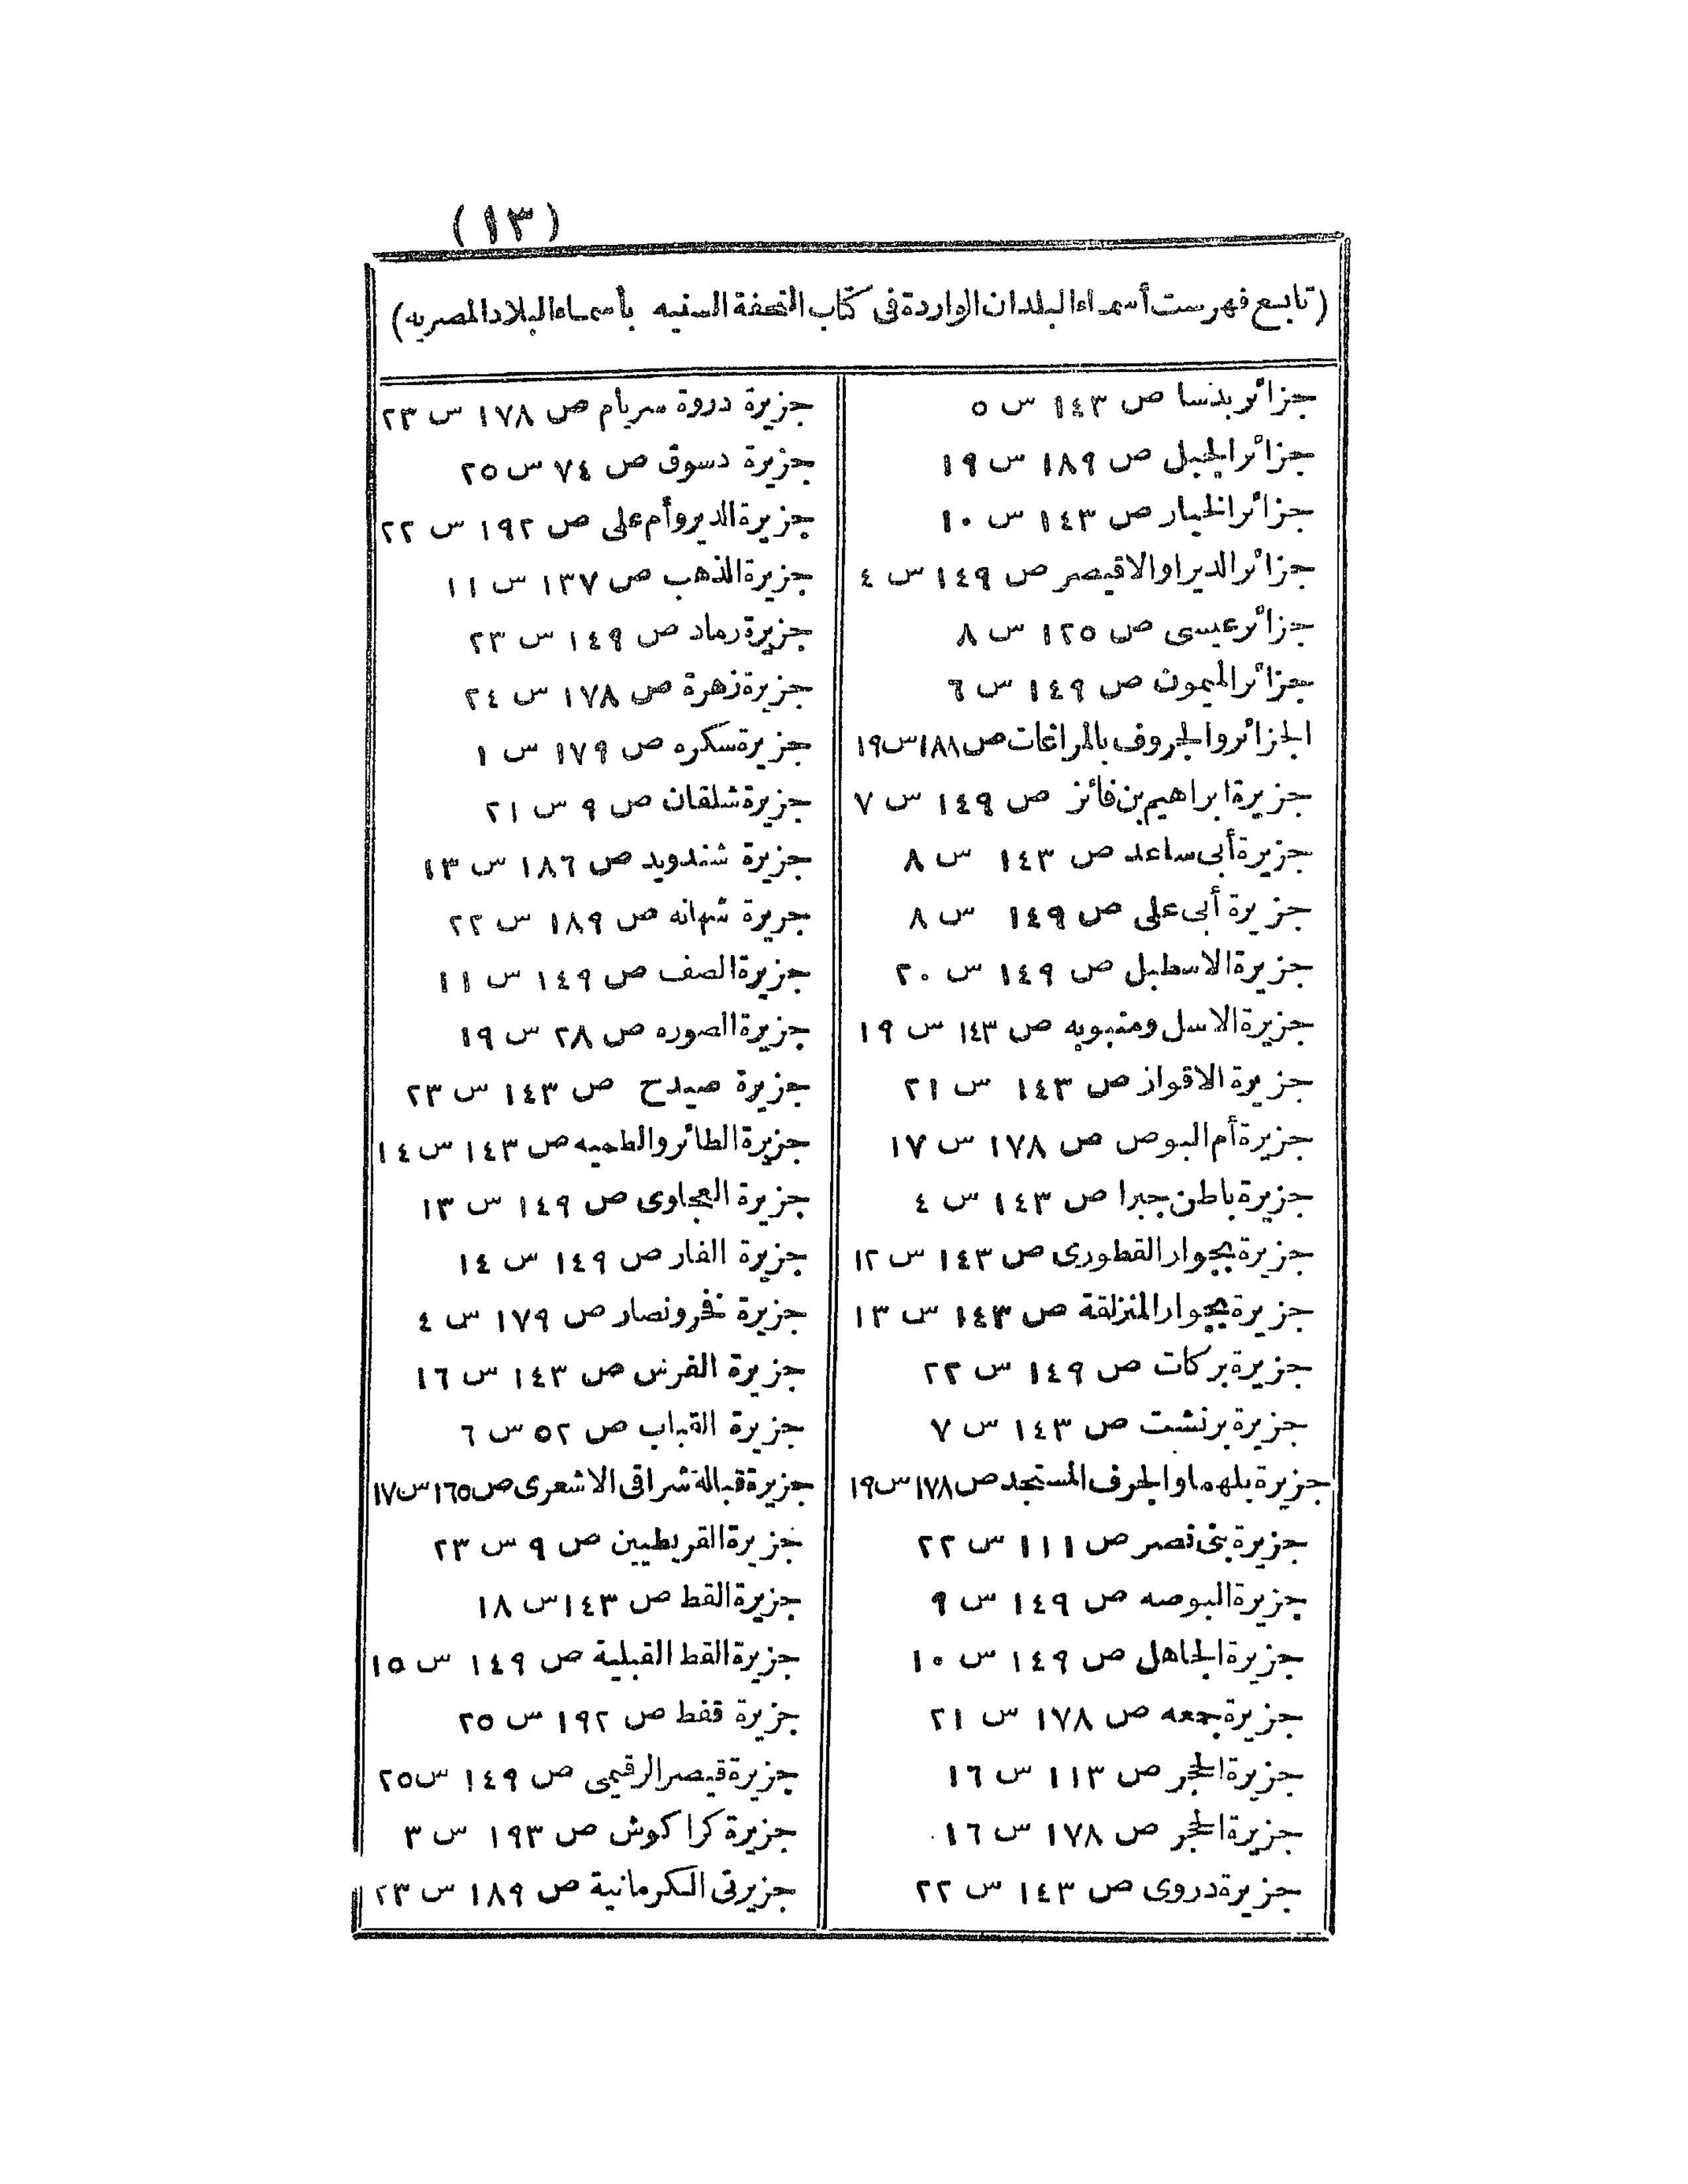 (١٣)
(تابع فهرست أسماء البلدان الواردة فى كتاب التحفة السنيه بأسماء البلاد المصريه)
جزائر بدسا ص ١٤٣ س ٥
جزائر الجبل ص ١٨٩ س ١٩
جزائر الخيار ص ١٤٣ س ١٠
جزائر الديرا والاقيصر ص ١٤٩ س ٤
جزائر عيسى ص ١٢٥ س ٨
جزائر الميمون ص ١٤٩ س ٦
الجزائر والجروف بالمراغات ص ١٨٨ س ١٩
جزيرة ابراهيم بن فائز ص ١٤٩ س ٧
جزيرة أبى ساعد ص ١٤٣ س ٨
جزيرة أبى على ص ١٤٩ س ٨
جزيرة الاسطبل ص ١٤٩ س ٢٠
جزيرة الاسل ومتبويه ص ١٤٣ س ١٩
جزيرة الاقواز ص ١٤٣ س ٢١
جزيرة أم البوص ص ١٧٨ س ١٧
جزيرة باطن جبرا ص ١٤٣ س ٤
جزيرة بجوار القطورى ص ١٤٣ س ١٢
جزيرة بجوار المنزلقة ص ١٤٣ س ١٣
جزيرة بركات ص ١٤٩ س ٢٢
جزيرة برنشت ص ١٤٣ س ٧
جزيرة بلهما والجرف المستجد ص ١٧٨ س ١٩
جزيرة بنى نصر ص ١١١ س ٢٢
جزيرة البوصه ص ١٤٩ س ٩
جزيرة الجاهل ص ١٤٩ س ١٠
جزيرة جعه ص ١٧٨ س ٢١
جزيرة الحجر ص ١١٣ س ١٦
جزيرة الحجر ص ١٧٨ س ١٦
جزيرة دروى ص ١٤٣ س ٢٢
جزيرة دروة سريام ص ١٧٨ س ٢٣
جزيرة دسوق ص ٧٤ س ٢٥
جزيرة الدير وأم على ص ١٩٢ س ٢٢
جزيرة الذهب ص ١٣٧ س ١١
جزيرة رماد ص ١٤٩ س ٢٣
جزيرة زهرة ص ١٧٨ س ٢٤
جزيرة سكره ص ١٧٩ س ١
جزيرة شلقان ص ٩ س ٢١
جزيرة شندويد ص ١٨٦ س ١٣
جريرة شهانه ص ١٨٩ س ٢٢
جزيرة الصف ص ١٤٩ س ١١
جزيرة الصوره ص ٢٨ س ١٩
جزيرة صيدح ص ١٤٣ س ٢٣
جزيرة الطائر والطميه ص ١٤٣ س ١٤
جزيرة العجاوى ص ١٤٩ س ١٣
جزيرة الفار ص ١٤٩ س ١٤
جزيرة فخر ونصار ص ١٧٩ س ٤
جزيرة الفرس ص ١٤٣ س ١٦
جزيرة القباب ص ٥٢ س ٦
جزيرة قبالة شراقى الاشعرى ص ١٦٥ س ١٧
جزيرة القريطيين ص ٩ س ٢٣
جزيرة القط ص ١٤٣ س ١٨
جزيرة القط القبلية ص ١٤٩ س ١٥
جزيرة قفط ص ١٩٢ س ٢٥
جزيرة قيصر الرقيمى ص ١٤٩ س ٢٥
جزيرة كراكوش ص ١٩٣ س ٣
جزيرتى الكرمانية ص ١٨٩ س ٢٣